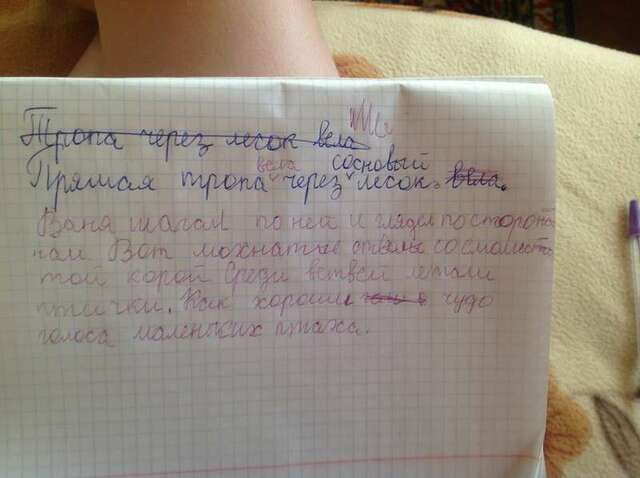 Тропа через лесок вела
вела сосновый
Прямая тропа через лесок. вела.
Ваня шагал по ней и глядел по сторона
нам Вот мохнатые стволы со смолисто
той корой Среди ветвей летали
птички. Как хороши чудо
голоса маленьких птаха.